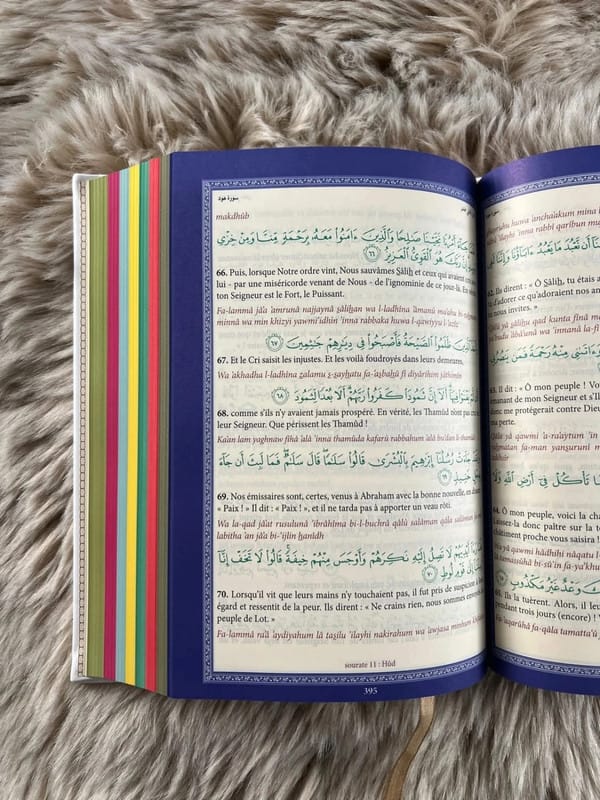 سورة هود
makdhûb
جَاءَ أَمْرُنَا نَجَّيْنَا صَالِحًا وَالَّذِينَ ءَامَنُوا مَعَهُ بِرَحْمَةٍ مِنَّا وَمِنْ خِزْيِ
إِنَّ رَبَّكَ هُوَ الْقَوِيُّ الْعَزِيزُ ٦٦
66. Puis, lorsque Notre ordre vint, Nous sauvâmes Ṣâliḥ et ceux qui avaient
lui - par une miséricorde venant de Nous - de l'ignominie de ce jour-là. En
ton Seigneur est le Fort, le Puissant.
Fa-lammâ jâ'a 'amrunâ najjaynâ ṣâliḥan wa l-ladhîna 'âmanû ma'ahu bi-raḥmatin
minnâ wa min khizyi yawmi'idhin 'inna rabbaka huwa l-qawiyyu l-'azîz
الَّذِينَ ظَلَمُوا الصَّيْحَةُ فَأَصْبَحُوا فِي دِيَارِهِمْ جَاثِمِينَ ٦٧
67. Et le Cri saisit les injustes. Et les voilà foudroyés dans leurs demeures,
Wa 'akhadha l-ladhîna ẓalamu ṣ-ṣayḥatu fa-'aṣbaḥû fî diyârihim jâthimîn
يَغْنَوْا فِيهَا أَلَا إِنَّ ثَمُودَا كَفَرُوا رَبَّهُمْ أَلَا بُعْدًا لِثَمُودَ ٦٨
68. comme s'ils n'y avaient jamais prospéré. En vérité, les Thamûd n'ont pas cru
leur Seigneur. Que périssent les Thamûd !
Ka'an lam yaghnaw fîhâ 'alâ 'inna thamûda kafarû rabbahum 'alâ bu'dan li-thamûd
جَاءَتْ رُسُلُنَا إِبْرَاهِيمَ بِالْبُشْرَى قَالُوا سَلَامًا قَالَ سَلَامٌ فَمَا لَبِثَ أَن جَاءَ
بِعِجْلٍ حَنِيذٍ ٦٩
69. Nos émissaires sont, certes, venus à Abraham avec la bonne nouvelle, en
« Paix ! » Il dit : « Paix ! », et il ne tarda pas à apporter un veau rôti.
Wa la-qad jâ'at rusulunâ 'ibrâhîma bi-l-buchrâ qâlû salâman qâla salâmun
labitha 'an jâ'a bi-'ijlin ḥanîdh
أَيْدِيَهُمْ لَا تَصِلُ إِلَيْهِ نَكِرَهُمْ وَأَوْجَسَ مِنْهُمْ خِيفَةً قَالُوا لَا تَخَفْ إِنَّا
إِلَى قَوْمِ لُوطٍ ٧٠
70. Lorsqu'il vit que leurs mains n'y touchaient pas, il fut pris de suspicion à
égard et ressentit de la peur. Ils dirent : « Ne crains rien, nous sommes
peuple de Lot. »
Fa-lammâ ra'â 'aydiyahum lâ taṣilu 'ilayhi nakirahum wa 'awjasa minhum
sourate 11 : Hûd
395
huwa 'ancha'akum mina
'ilayhi 'inna rabbî qarîbun
أَن نَّعْبُدَ مَا يَعْبُدُ ءَابَاؤُنَا وَإِنَّنَا
62. Ils dirent : « Ô Ṣâliḥ, tu étais
d'adorer ce qu'adoraient nos
nous invites. »
Qâlû yâ ṣâliḥu qad kunta fînâ
مِنْهُ رَحْمَةً فَمَن
63. Il dit : « Ô mon peuple !
mon Seigneur et
me protégerait contre
perte.
Qâla yâ qawmi 'a-ra'aytum 'in
fa-man yanṣurunî
تَأْكُلْ فِي أَرْضِ اللَّهِ وَلَا
64. Ô mon peuple, voici la
Laissez-la donc paître sur la
châtiment proche vous saisira !
yâ qawmi hâdhihi nâqatu
وَعْدٌ غَيْرُ مَكْذُوبٍ
65. Ils la tuèrent. Alors, il
pendant trois jours (encore) !
Fa-'aqarûhâ fa-qâla tamatta'û